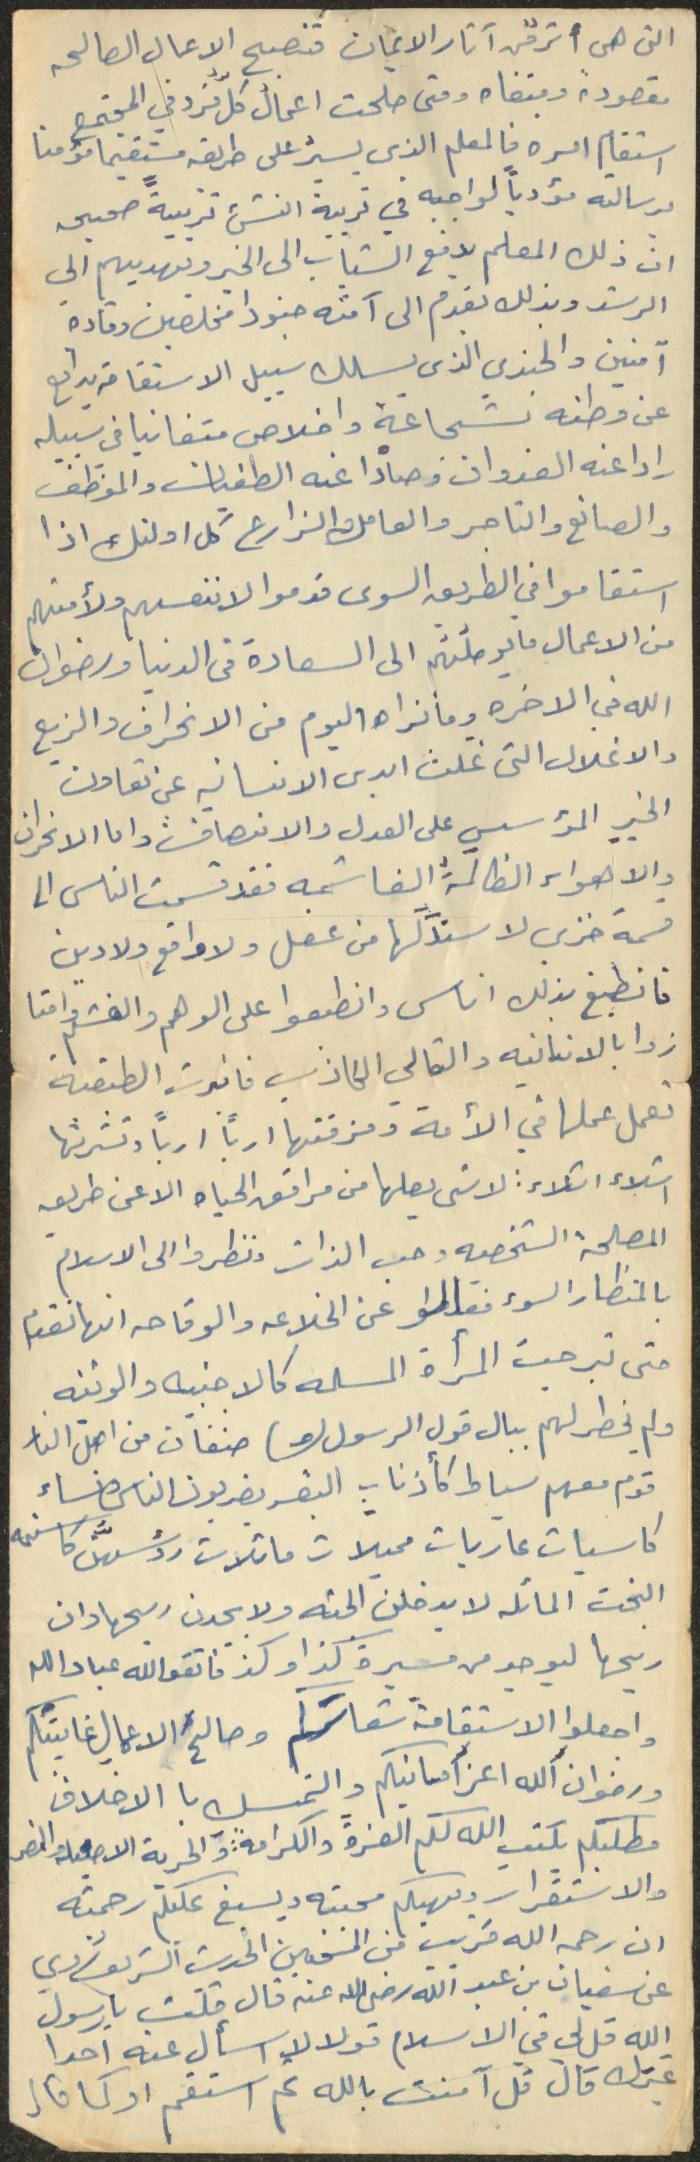 التى هى اشرف آثار الايمان فتصبح الاعمال الصالحه
مقصودة ومبتغاه ومتى صلحت اعمال كل فرد في المجتمع
استقام امره فالمعلم الذى يسير على طريقه مستقيما مؤمنا
برسالته مؤدياً لواجبه في تربية النشئ تربيةً صحيحه
ان ذلك المعلم يدفع الشباب الى الخير ويهديهم الى
الرشد وبذلك يقدم الى آمته جنودا مخلصين وقادة
آمنين والجندي الذى يسلك سبيل الاستقامة يدافع
عن وطنه بشجاعة واخلاص متفانيا في سبيله
رادا عنه العدوان وصادًا عنه الطغيان والموظف
والصانع والتاجر والعامل والزارع كل اولئك اذا
استقاموا في الطريق السوى قدموا لانفسهم ولأمتهم
من الاعمال ما يوصلهم الى السعادة فى الدنيا ورضوان
الله في الاخره وما نراه اليوم من الانحراف والزيع
والاغلال التى غلت ايدى الانسانيه عن تعاون
الخير المؤسس على العدل والانصاف واما الانحراف
والاهواء الظالمة الغاشمه فقد قسمت الناس الى
قسمة ضزى لا ستدلها من عقل ولا واقع ولا دين
فانطبغ بذلك اناس وانطبعوا على الوهم والغشم وامتا
زوا بالانانيه والتعالي الكاذب فانبرت الطبقية
تعمل عملها في الأمة ومزقتها اربًا اربًا وتشرتها
اشلاء اشلاء: لا شى يصلها من مرافق الحياه الا عن طريق
المصلحة الشخصيه وحب الذات ونظروا الى الاسلام
بالمنظار السوء فقالوا عن الخلاعه والوقاحه انها تقدم
حتى تبرجت المرأة المسلمه كالاجنبيه والوثنيه
ولم يخطر لهم ببال قول الرسول (ص) صنفان من اهل النار
قوم معهم سياط كأذناب البقر يضربون الناس ونساء
كاسيات عاريات مميلات مائلات رؤسهنَّ كاسنمه
البخت المائله لا يدخلن الجنه ولا يجدن ريحها وان
ريحها ليوجد من مسيرة كذا وكذا فاتقو الله عباد الله
واجعلوا الاستقامة شعاركم وصالح الاعمال غايتكم
ورضوان الله اعز أمانيكم والتمسك با الاخلاق
مطلبكم يكتب الله لكم العزة والكرامة: والحرية الاصيله والنصر
والاستقرار ويهبكم محبته ويسبغ عليكم رحمته
ان رحمه الله قريب من المحسنين الحديث الشريف روي
عن سفيان بن عبد الله رضى الله عنه قال قلت يا رسول
الله قل لي في الاسلام قولا لا اسأل عنه احدا
غيرك قال قل آمنت بالله ثم استقم او كما قال